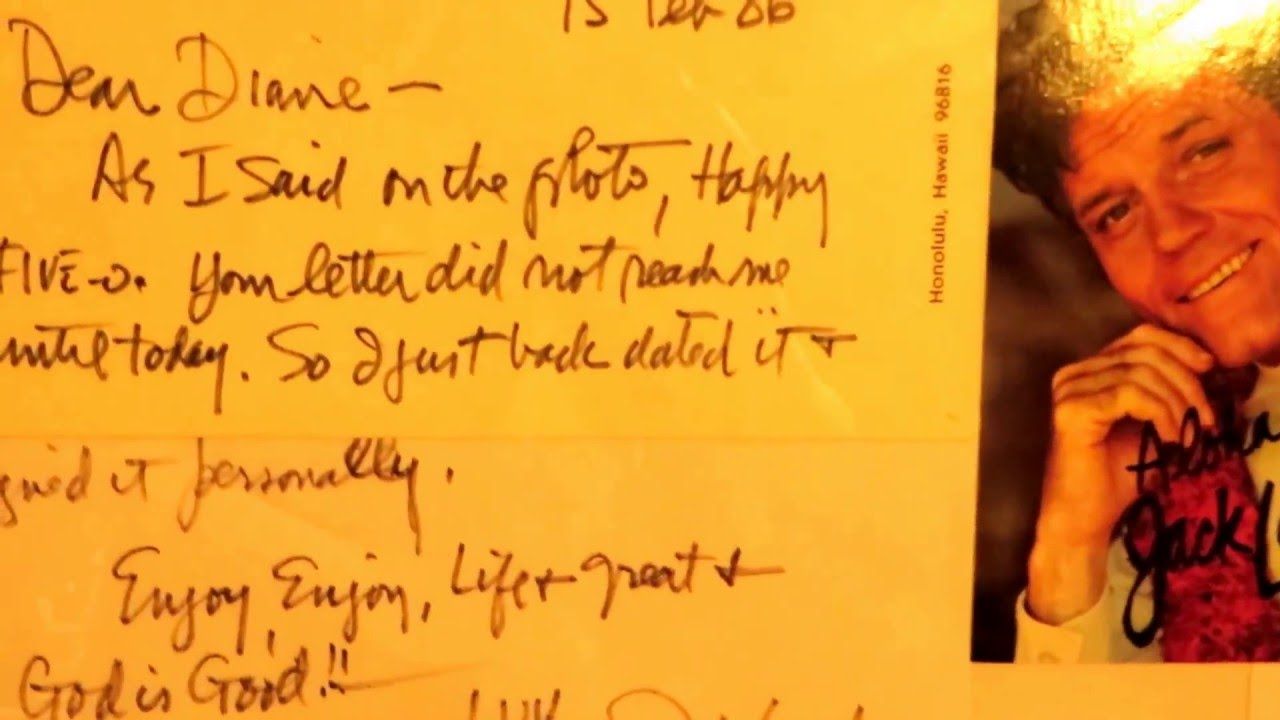 15 Feb 86
Dear Diane —
As I said on the photo, Happy
FIVE-O. Your letter did not reach me
until today. So I just back dated it +
signed it personally.
Enjoy, Enjoy, Life + great +
God is Good!!
Honolulu, Hawaii 96816
Aloha
Jack L